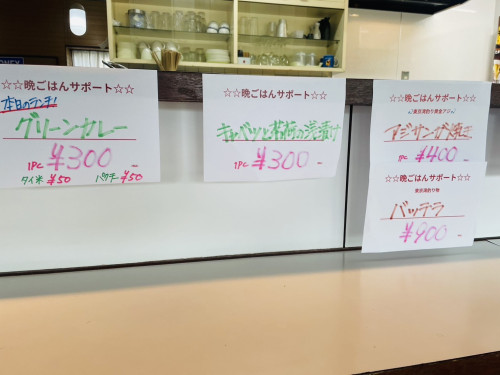 ☆☆晩ごはんサポート☆☆
本日のランチ!
グリーンカレー
1PC ¥300
タイ米 ¥50 パクチー ¥50
☆☆晩ごはんサポート☆☆
キャベツと茗荷の浅漬け
1PC ¥300
☆☆晩ごはんサポート☆☆
東京湾釣り黄金アジ
アジサンガ焼き
1PC ¥400
☆☆晩ごはんサポート☆☆
東京湾釣り物
バッテラ
¥900